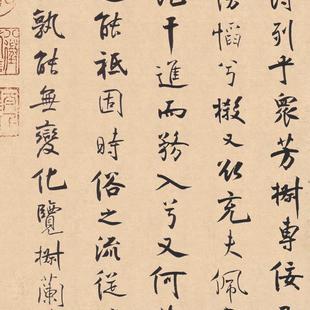 得列乎衆芳椒專佞
慆兮樧又欲充夫佩
干進而務入兮又何
能祗固時俗之流從
孰能無變化覽椒蘭